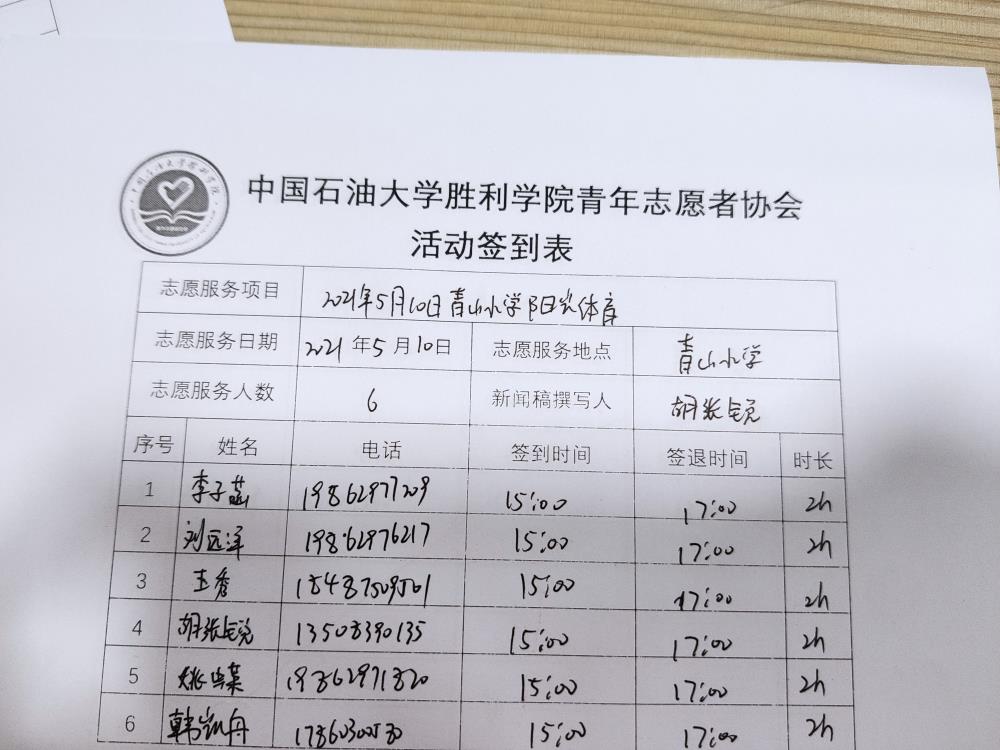 中国石油大学胜利学院青年志愿者协会
活动签到表
志愿服务项目 2021年5月10日青山小学阳光体育
志愿服务日期 2021年5月10日 志愿服务地点 青山小学
志愿服务人数 6 新闻稿撰写人 胡张锐
序号 姓名 电话 签到时间 签退时间 时长
1 李子菡 19862977209 15:00 17:00 2h
2 刘远洋 19862976217 15:00 17:00 2h
3 王秀 15:00 17:00 2h
4 胡张锐 13508390135 15:00 17:00 2h
5 19862971820 15:00 17:00 2h
6 韩凯舟 15:00 17:00 2h